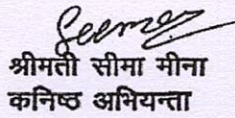 श्रीमती सीमा मीना
कनिष्ठ अभियन्ता